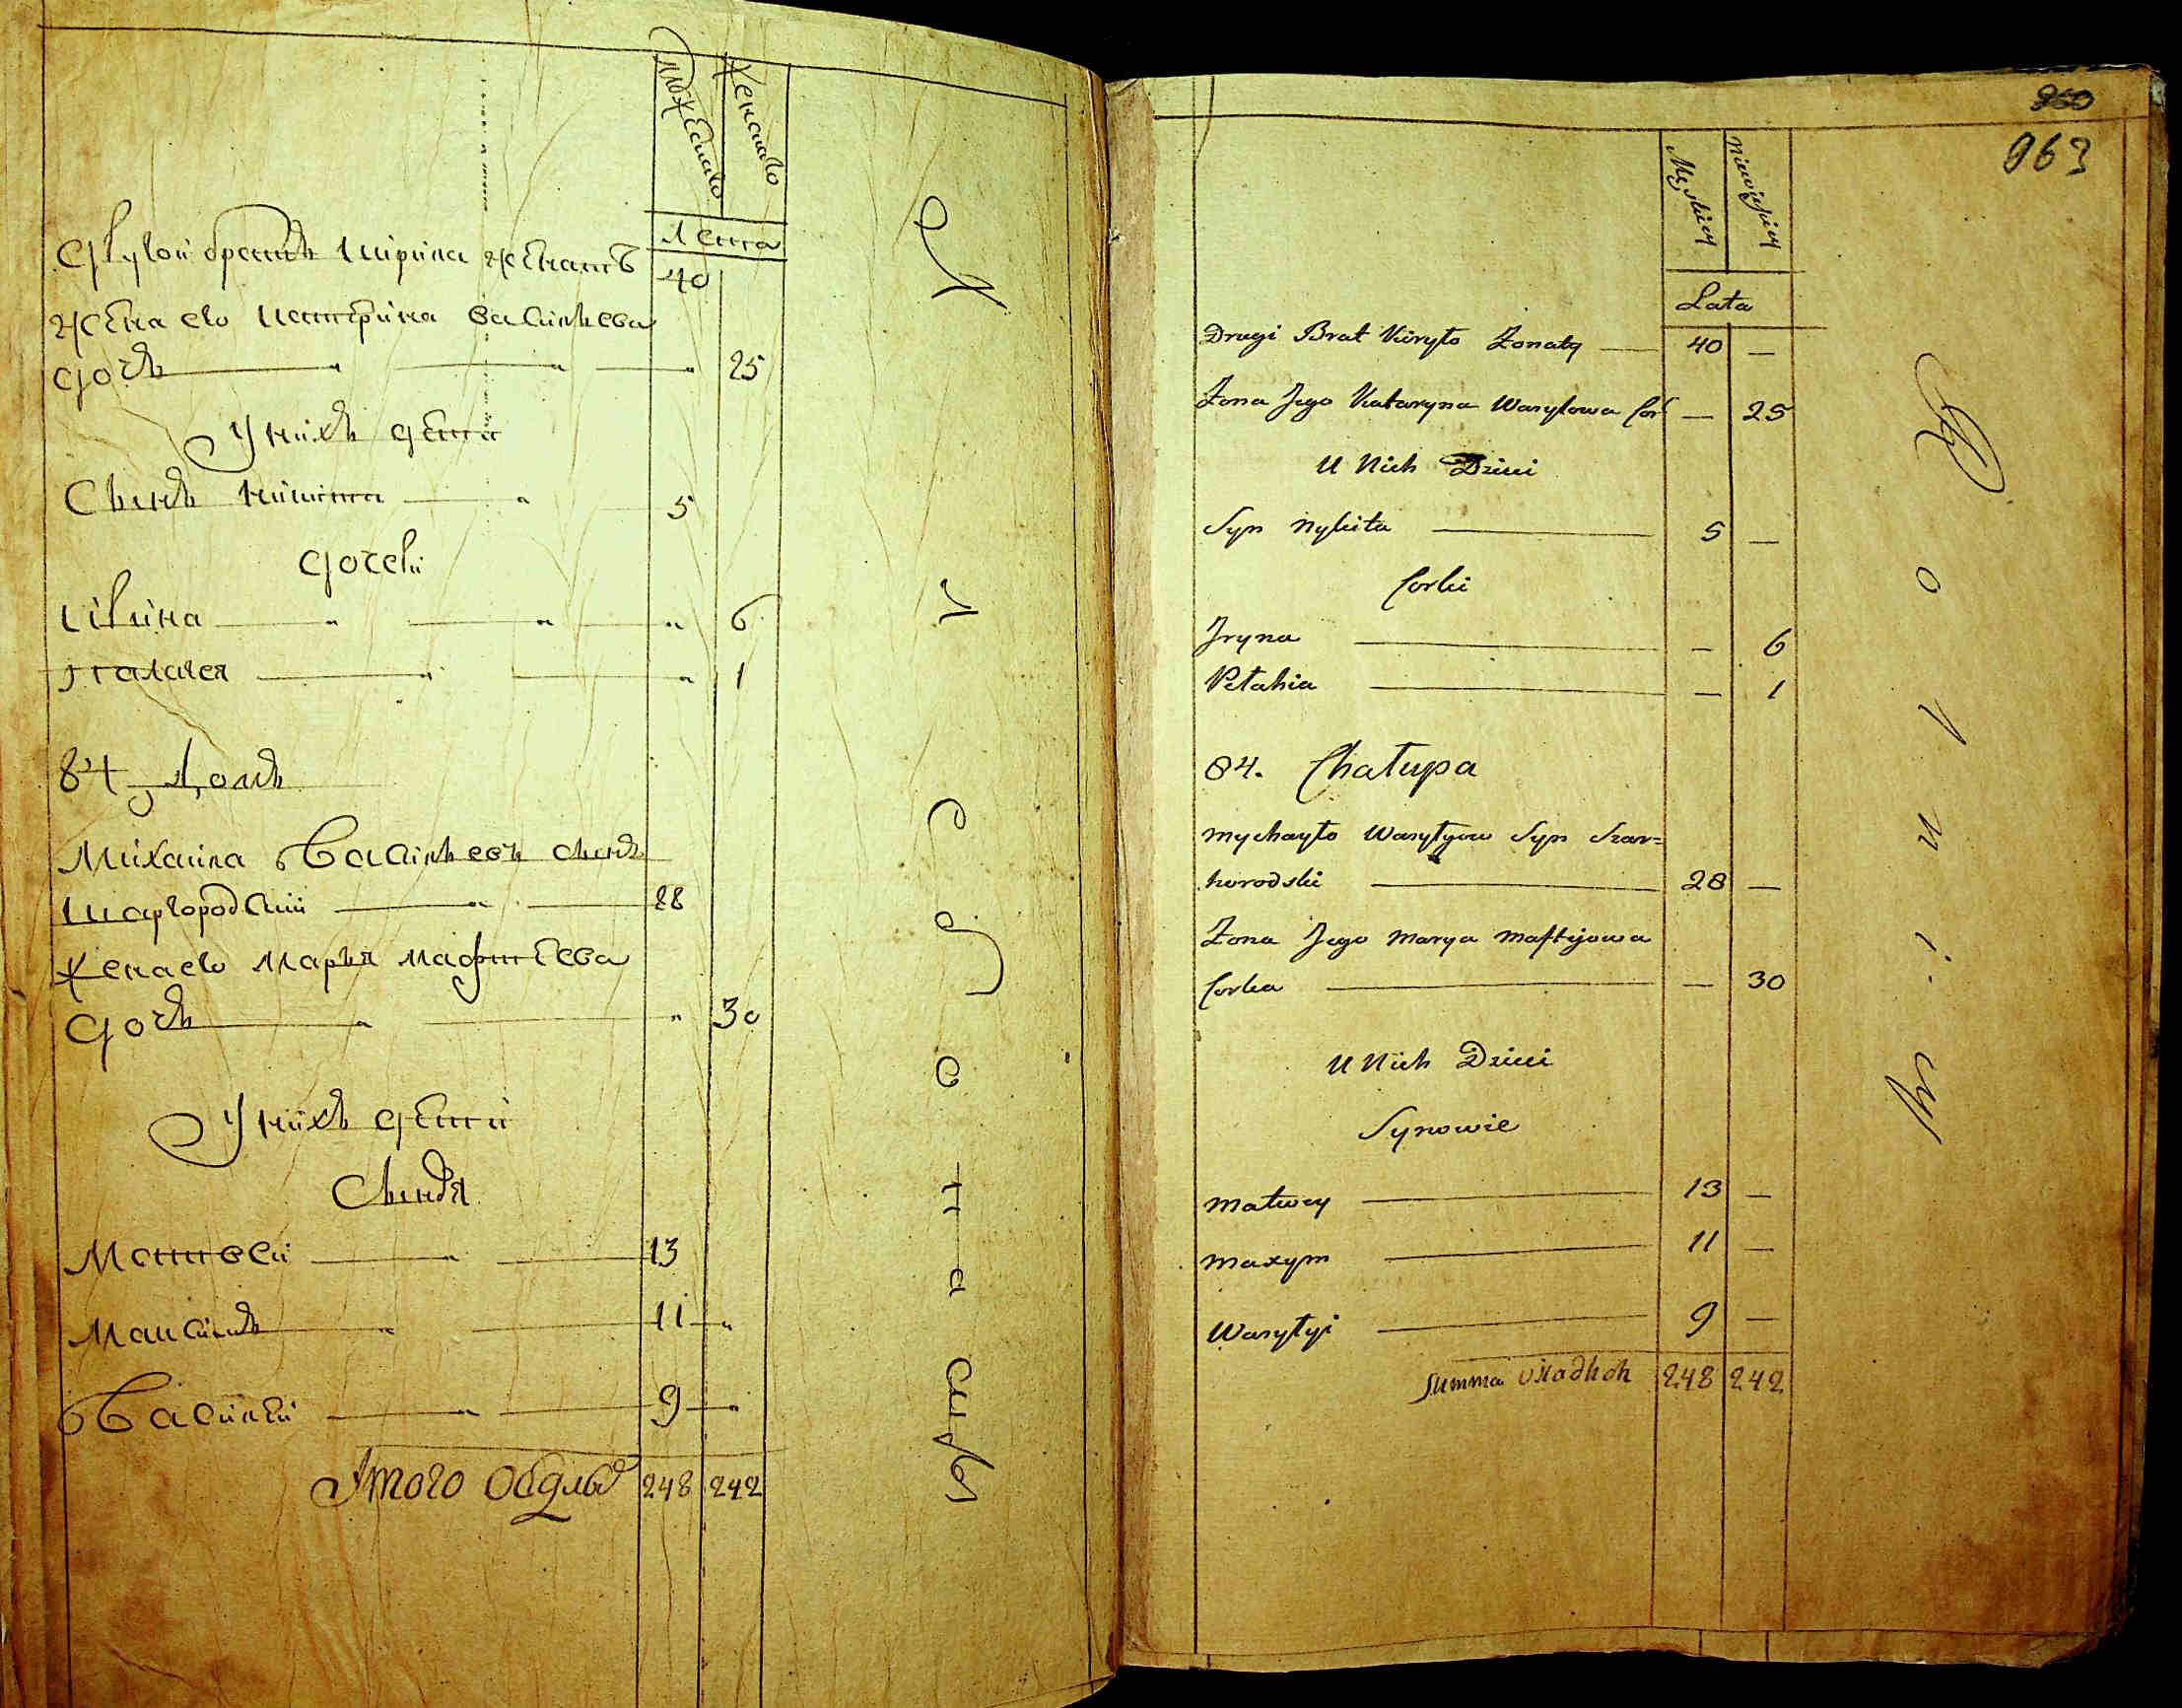 Мужеска
Женска
Лета
Другой братъ Кирила женатъ 40
жена его Катерина Васильева
дочь 25
У нихъ дети
Сынъ Никита 5
дочки
Ирина 6
Палагея 1
84 Домъ
Михаила Васильевъ сынъ
Шаргородский 28
Жена его Марья Мафтеева
дочь 30
У нихъ дети
Сыновя
Матвей 13
Максимъ 11
Василей 9
Итого 248 242
963
Męskiey
Niewieskiey
Lata
Drugi Brat Kiryło Żonaty — 40 —
Żona Jego Kataryna Wasylowa Cor — 25
U Nich Dzieci
Syn Nykita — 5 —
Corki
Jryna — 6
Pełahia — 1
84. Chałupa
Mychayło Wasylyow Syn Szar=
horodski — 28 —
Żona Jego Marya Maftijowa
Corka — 30
U Nich Dzieci
Synowie
Matwey — 13 —
Maxym — 11 —
Wasylyi — 9 —
Summa 248 242